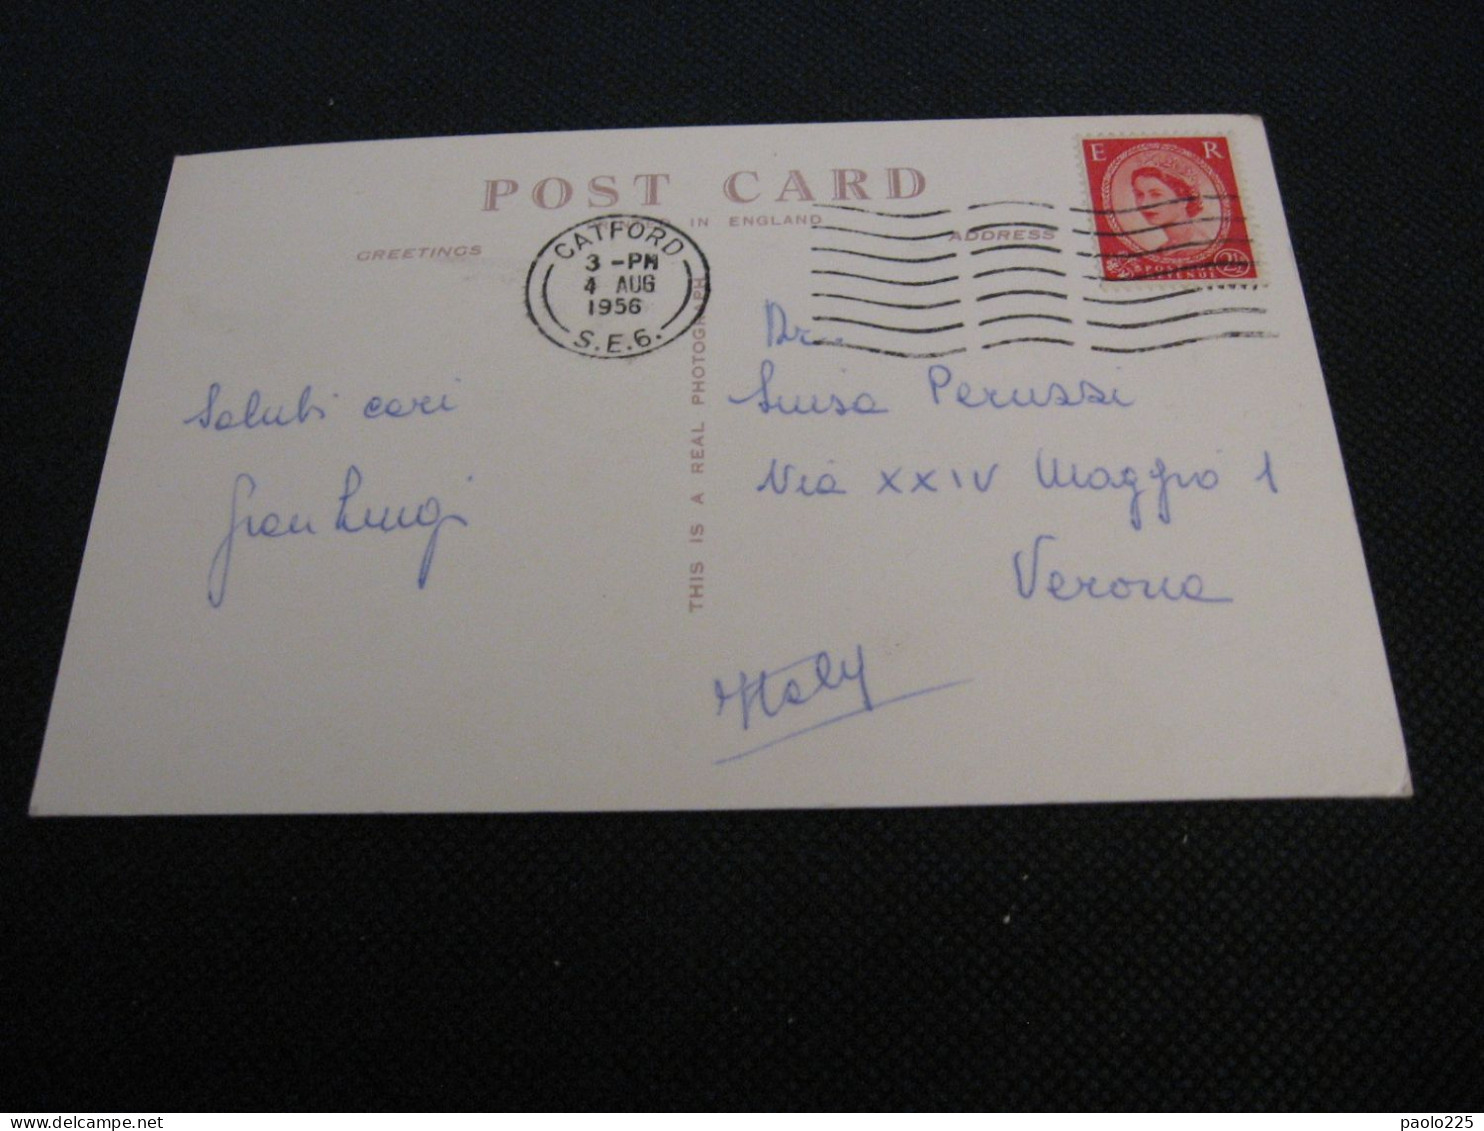 POST CARD
IN ENGLAND
GREETINGS
ADDRESS
CATFORD
3 - PM
4 AUG
1956
S.E.6.
E R
2½
THIS IS A REAL PHOTOGRAPH
Saluti cari
Gian Luigi
Dr.
Luisa Perussi
Via XXIV Maggio 1
Verona
Italy
paolo225